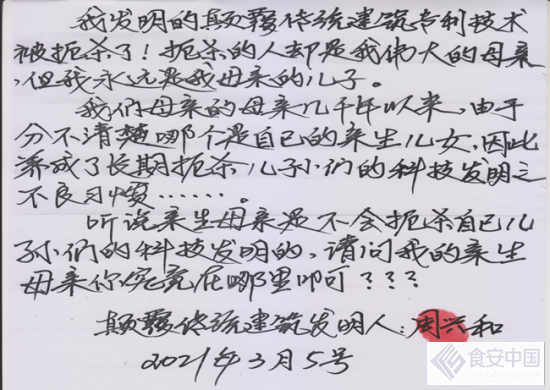 我发明的颠覆传统建筑专利技术
被扼杀了！扼杀的人却是我伟大的母亲
,但我永远是我母亲的儿子。
我们母亲的母亲几千年以来,由于
分不清楚哪个是自己的亲生儿女,因此
养成了长期扼杀儿子们的科技发明之
不良习惯……。
听说亲生母亲是不会扼杀自己儿
子们的科技发明的,请问我的亲生
母亲你究竟在哪里叩可???
颠覆传统建筑发明人:周兴和
2021年3月5号
食安中国